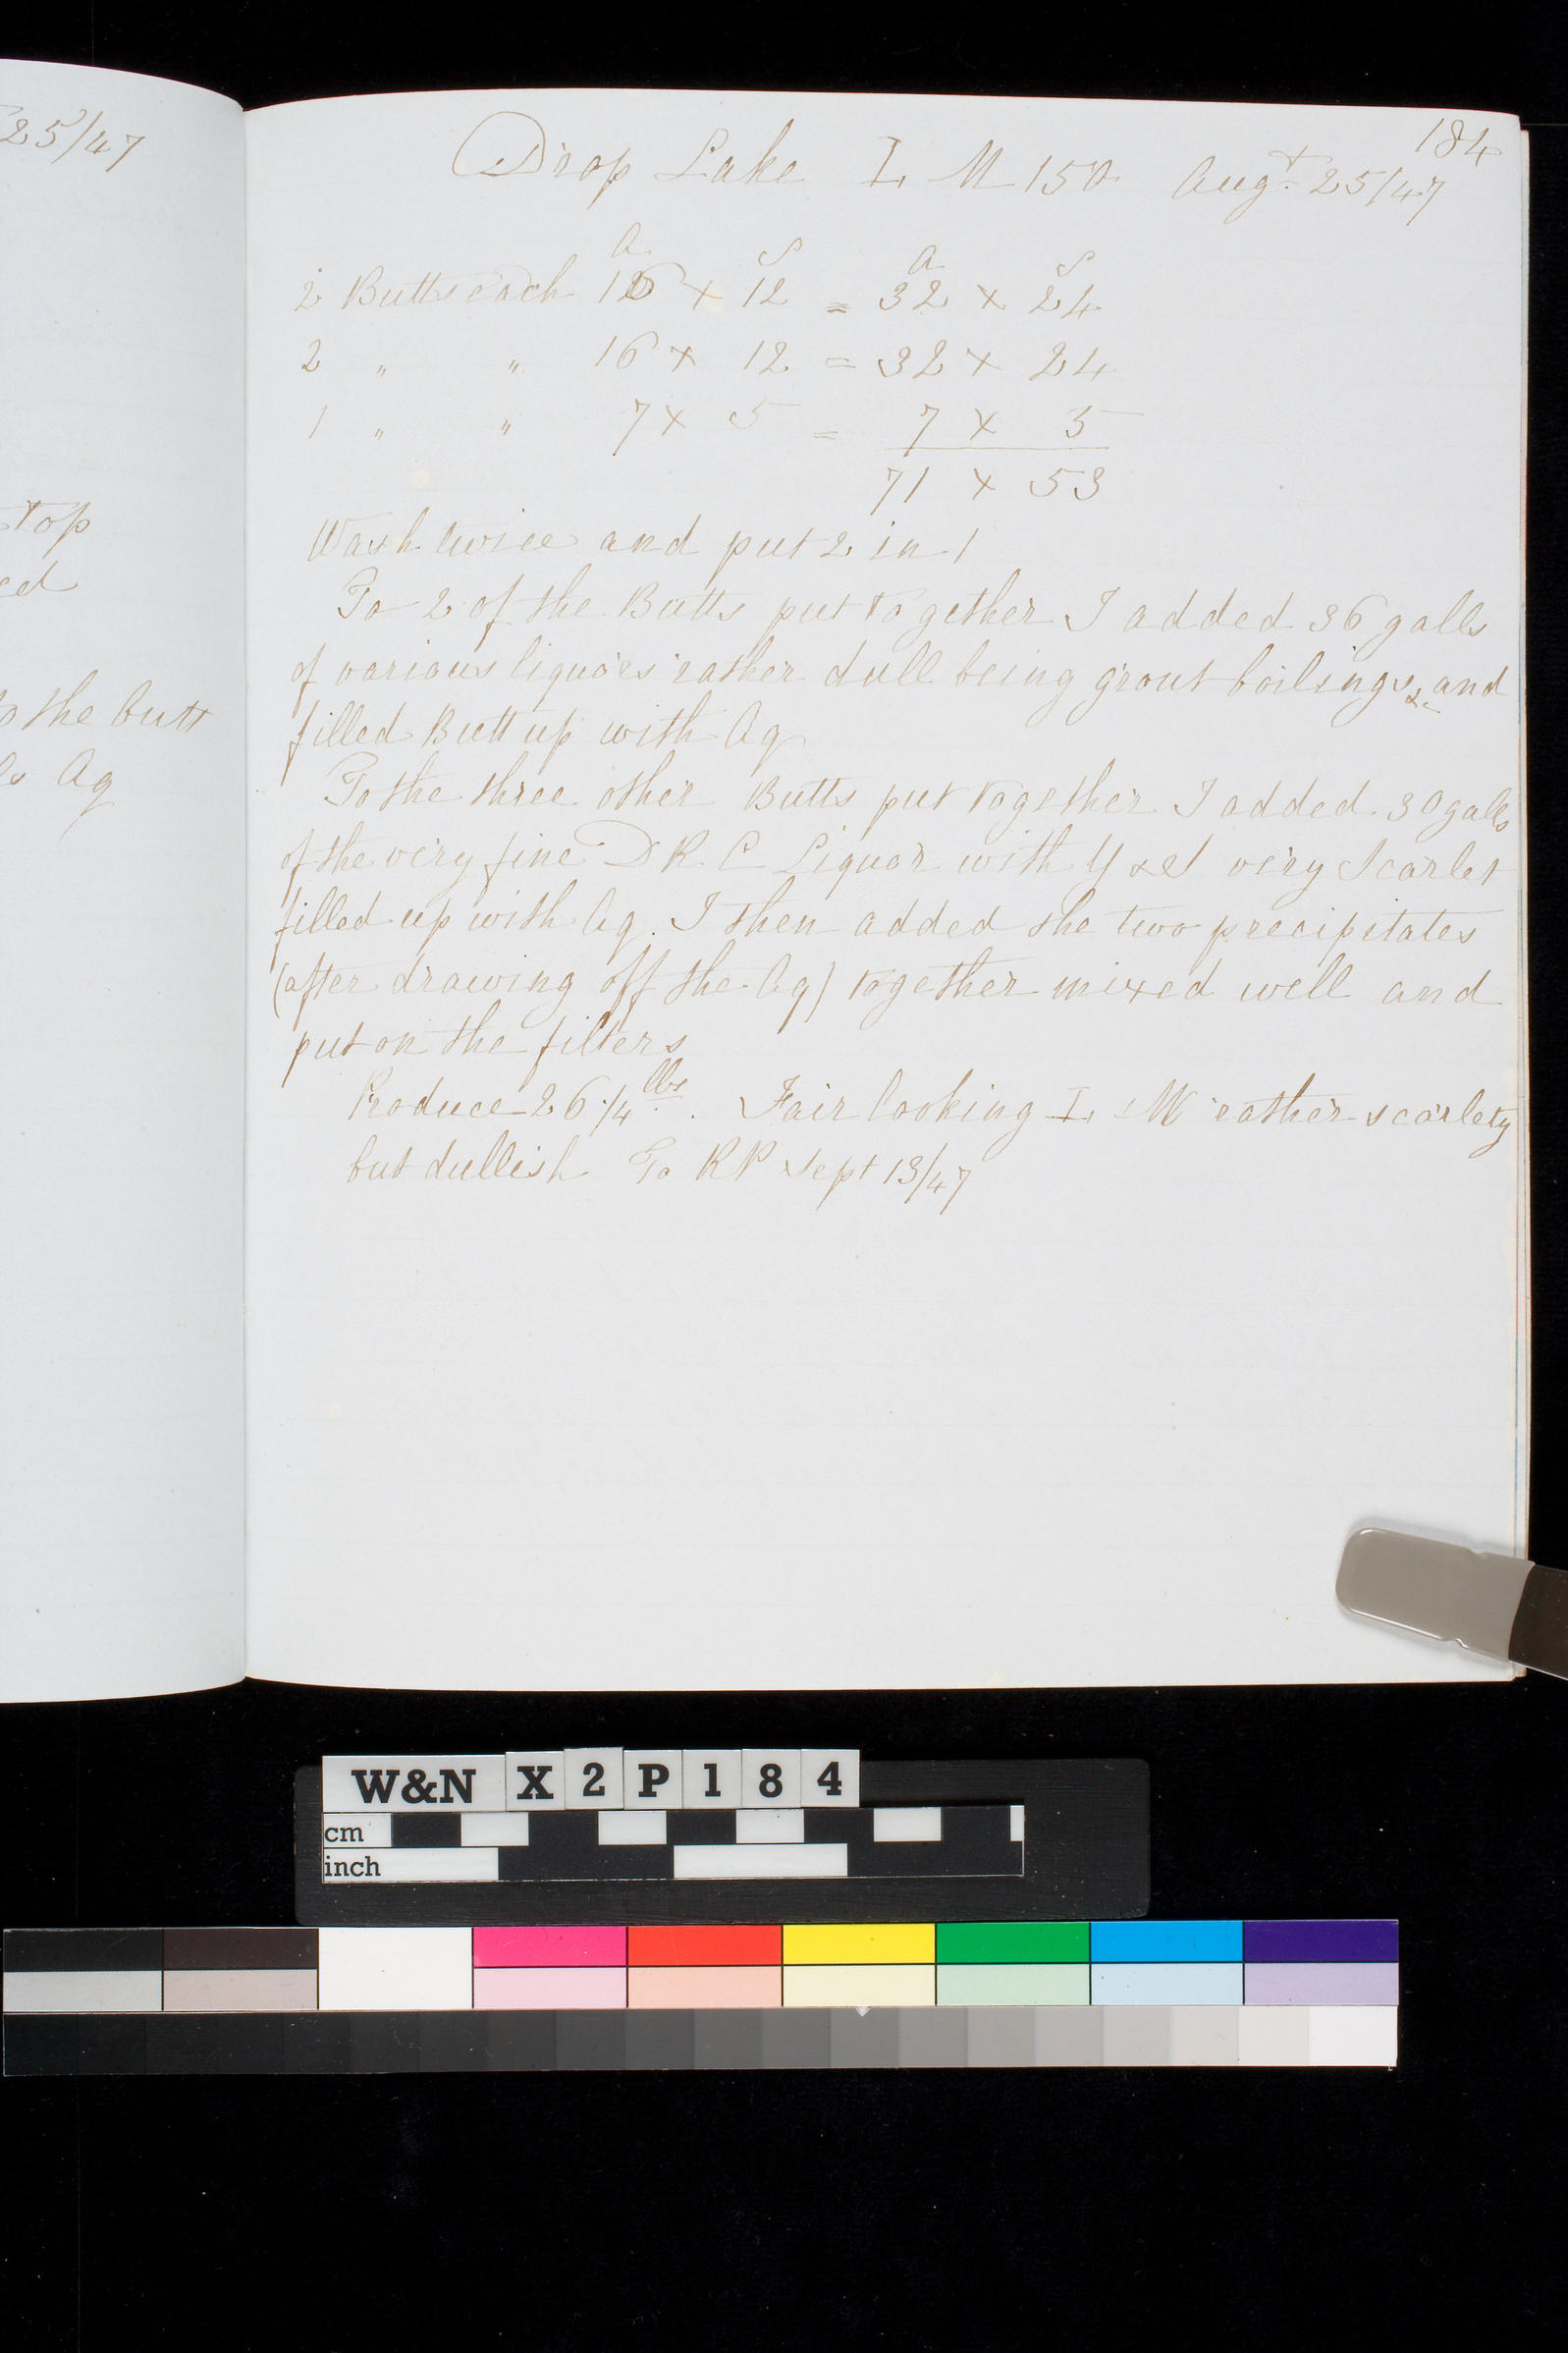 25/47
top
ed
o the butt
ls Aq
184
Drop Lake I, M 150 Augt 25/47
A S A S
2 Butts each 16 × 12 = 32 × 24
2 " " 16 × 12 = 32 × 24
1 " " 7 × 5 = 7 × 5
71 × 53
Wash twice and put 2 in 1
To 2 of the Butts put together I added 36 galls
of various liquors rather dull being grout boilings &c and
filled Butt up with Aq
To the three other Butts put together I added 30 galls
of the very fine D R. C Liquor with Y & S very Scarlet
filled up with Aq. I then added the two precipitates
(after drawing off the Aq) together mixed well and
put on the filters
Produce 26 1/4 lbs. Fair looking I, M rather scarlety
but dullish To RP Sept 13/47
W&N X 2 P 1 8 4
cm
inch